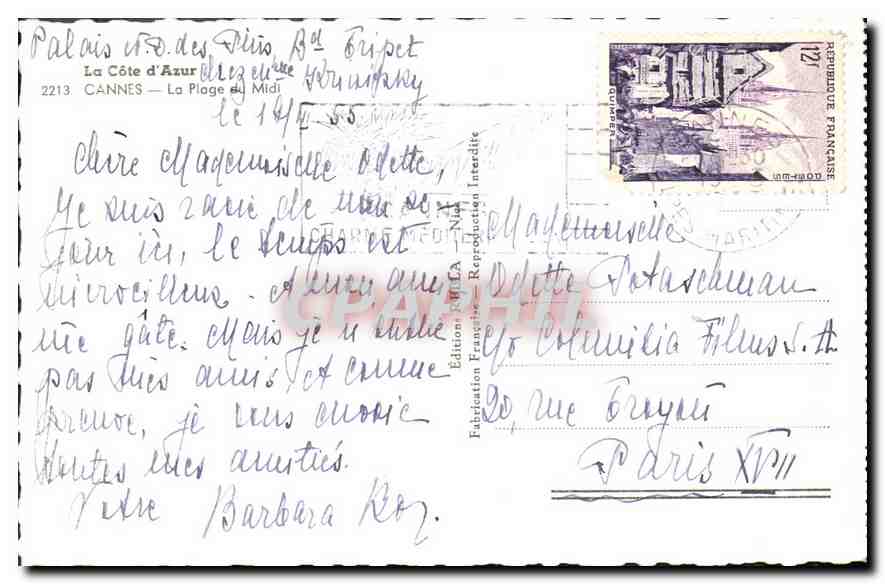 Palais N.D. des Pins, Bd Tripet
La Côte d'Azur chez Mme
2213 CANNES — La Plage du Midi
le 14/II 55
Chère Mademoiselle Odette,
Je suis ravie de mon séjour ici, le temps est
merveilleux. Mon ami
me gâte. Mais je n'oublie
pas mes amis. Et comme
preuve, je vous envoie
toutes mes amitiés.
Votre Barbara
Editions RELLA - Nice
Fabrication Française - Reproduction Interdite
12f
REPUBLIQUE FRANÇAISE
POSTES
QUIMPER
Mademoiselle
Odette Potaschman
c/o Columbia Films S.A.
20, rue Troyon
Paris XVII
CPAPHIL